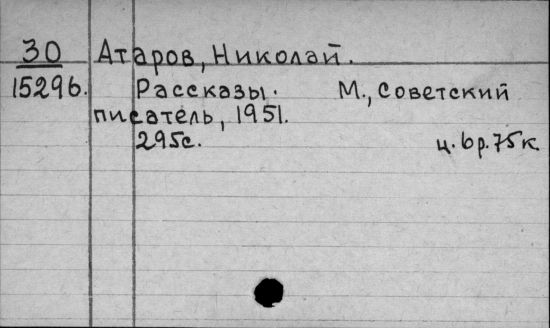 30 Атаров, Николай.
15296. Рассказы. М., Советский
писатель, 1951.
295с. ц. 6р.75к.